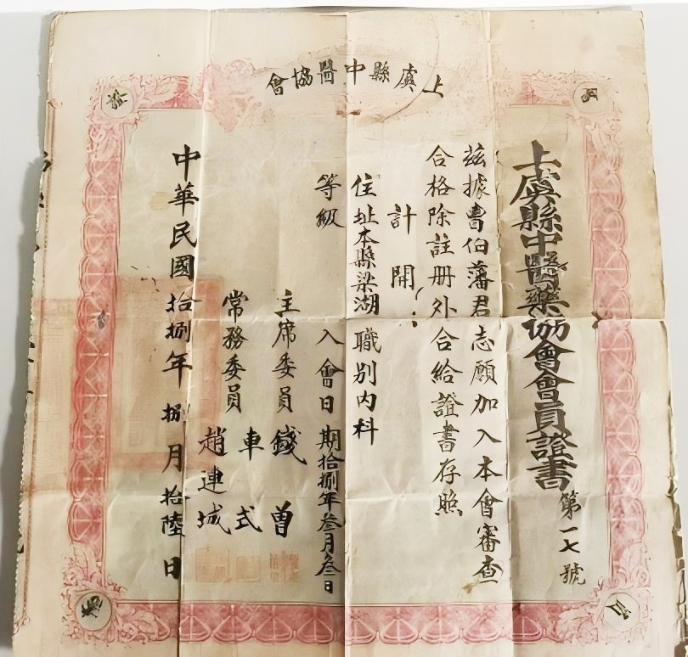 上虞縣中醫協會
上虞縣中醫藥協會會員證書
第一七號
茲據曹伯藩君志願加入本會審查
合格除註册外合給證書存照
計開：
住址本縣梁湖職別內科
等級 入會日期拾捌年叁月叁日
主席委員錢曾
常務委員車式
趙連城
中華民國拾捌年捌月拾陸日